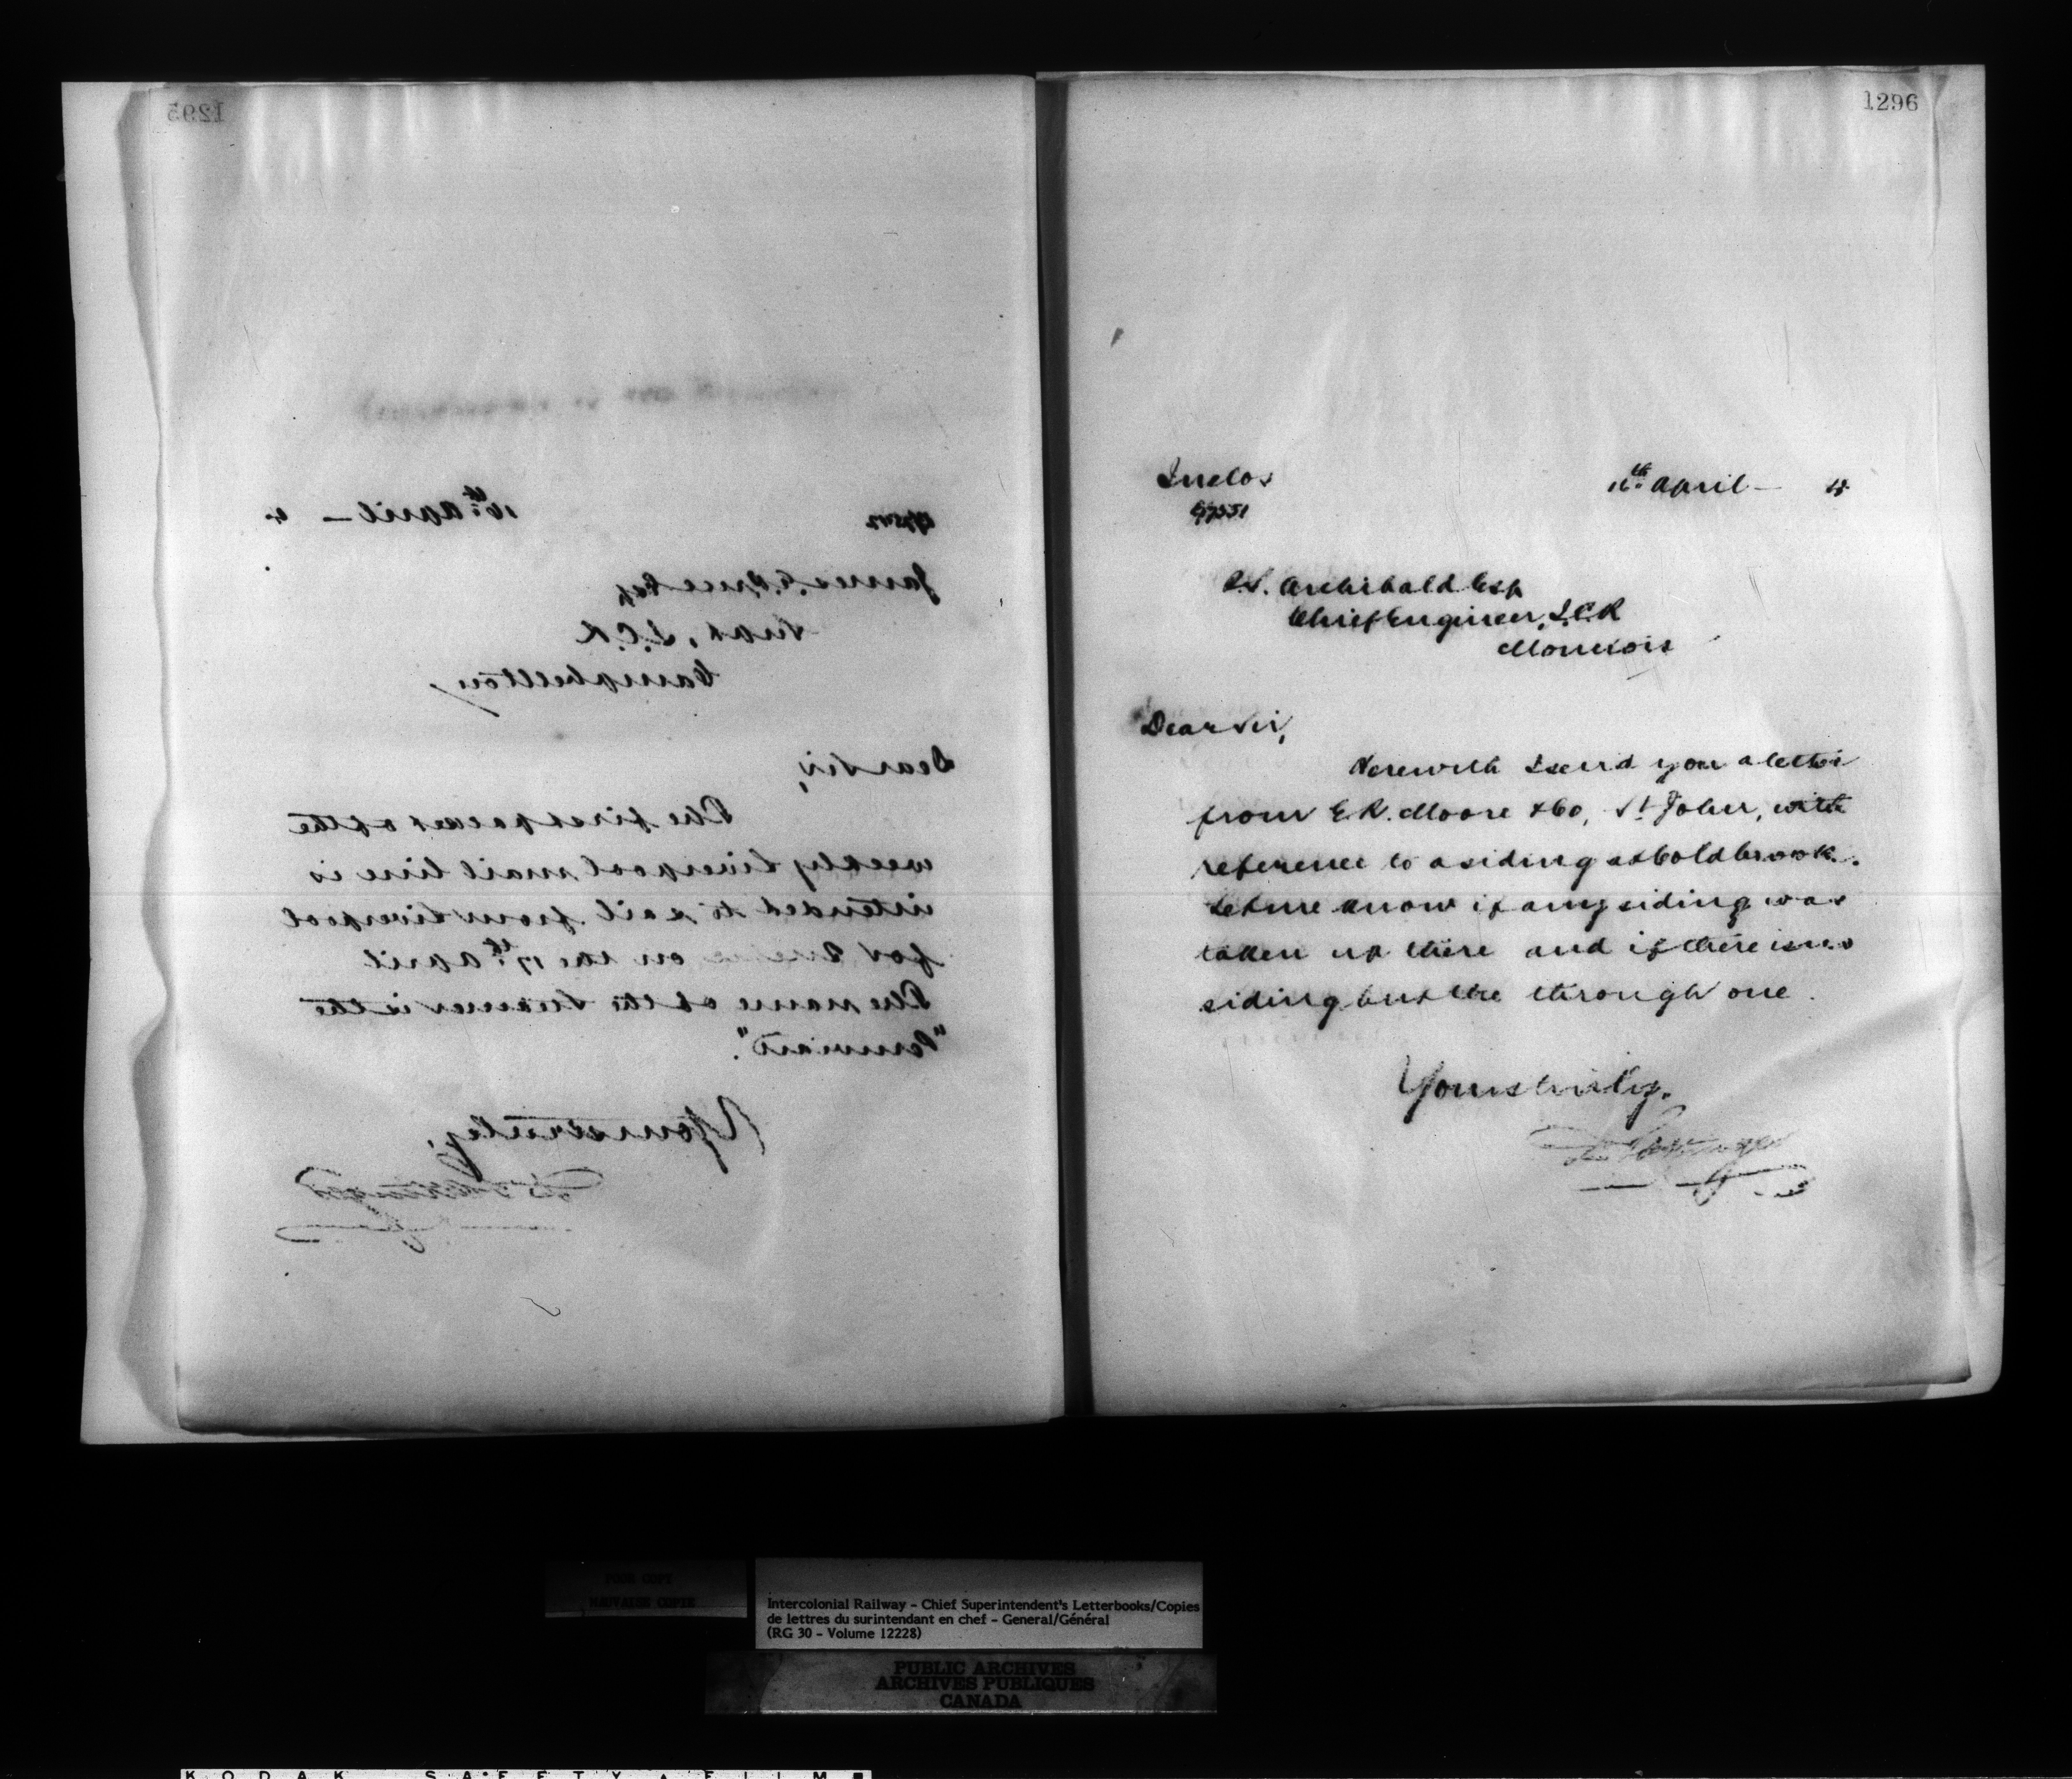 1295
16th April — 4.
James E. Price Esq
Supt, I.C.R
Campbellton
Dear Sir,
The first packet of the
weekly Liverpool mail line is
intended to sail from Liverpool
for Quebec on the 17th April
The name of the Steamer is the
"Peruvian".
Yours truly,
1296
Inclos
16th April — 4
67551
P.S. Archibald Esq
Chief Engineer, I.C.R
Moncton
Dear Sir,
Herewith I send you a letter
from E.R. Moore & Co, St John, with
reference to a siding at Coldbrook.
Let me know if any siding was
taken up there and if there is no
siding but the through one.
Yours truly.
POOR COPY
MAUVAISE COPIE
Intercolonial Railway - Chief Superintendent's Letterbooks/Copies
de lettres du surintendant en chef - General/Général
(RG 30 - Volume 12228)
PUBLIC ARCHIVES
ARCHIVES PUBLIQUES
CANADA
KODAK SAFETY FILM